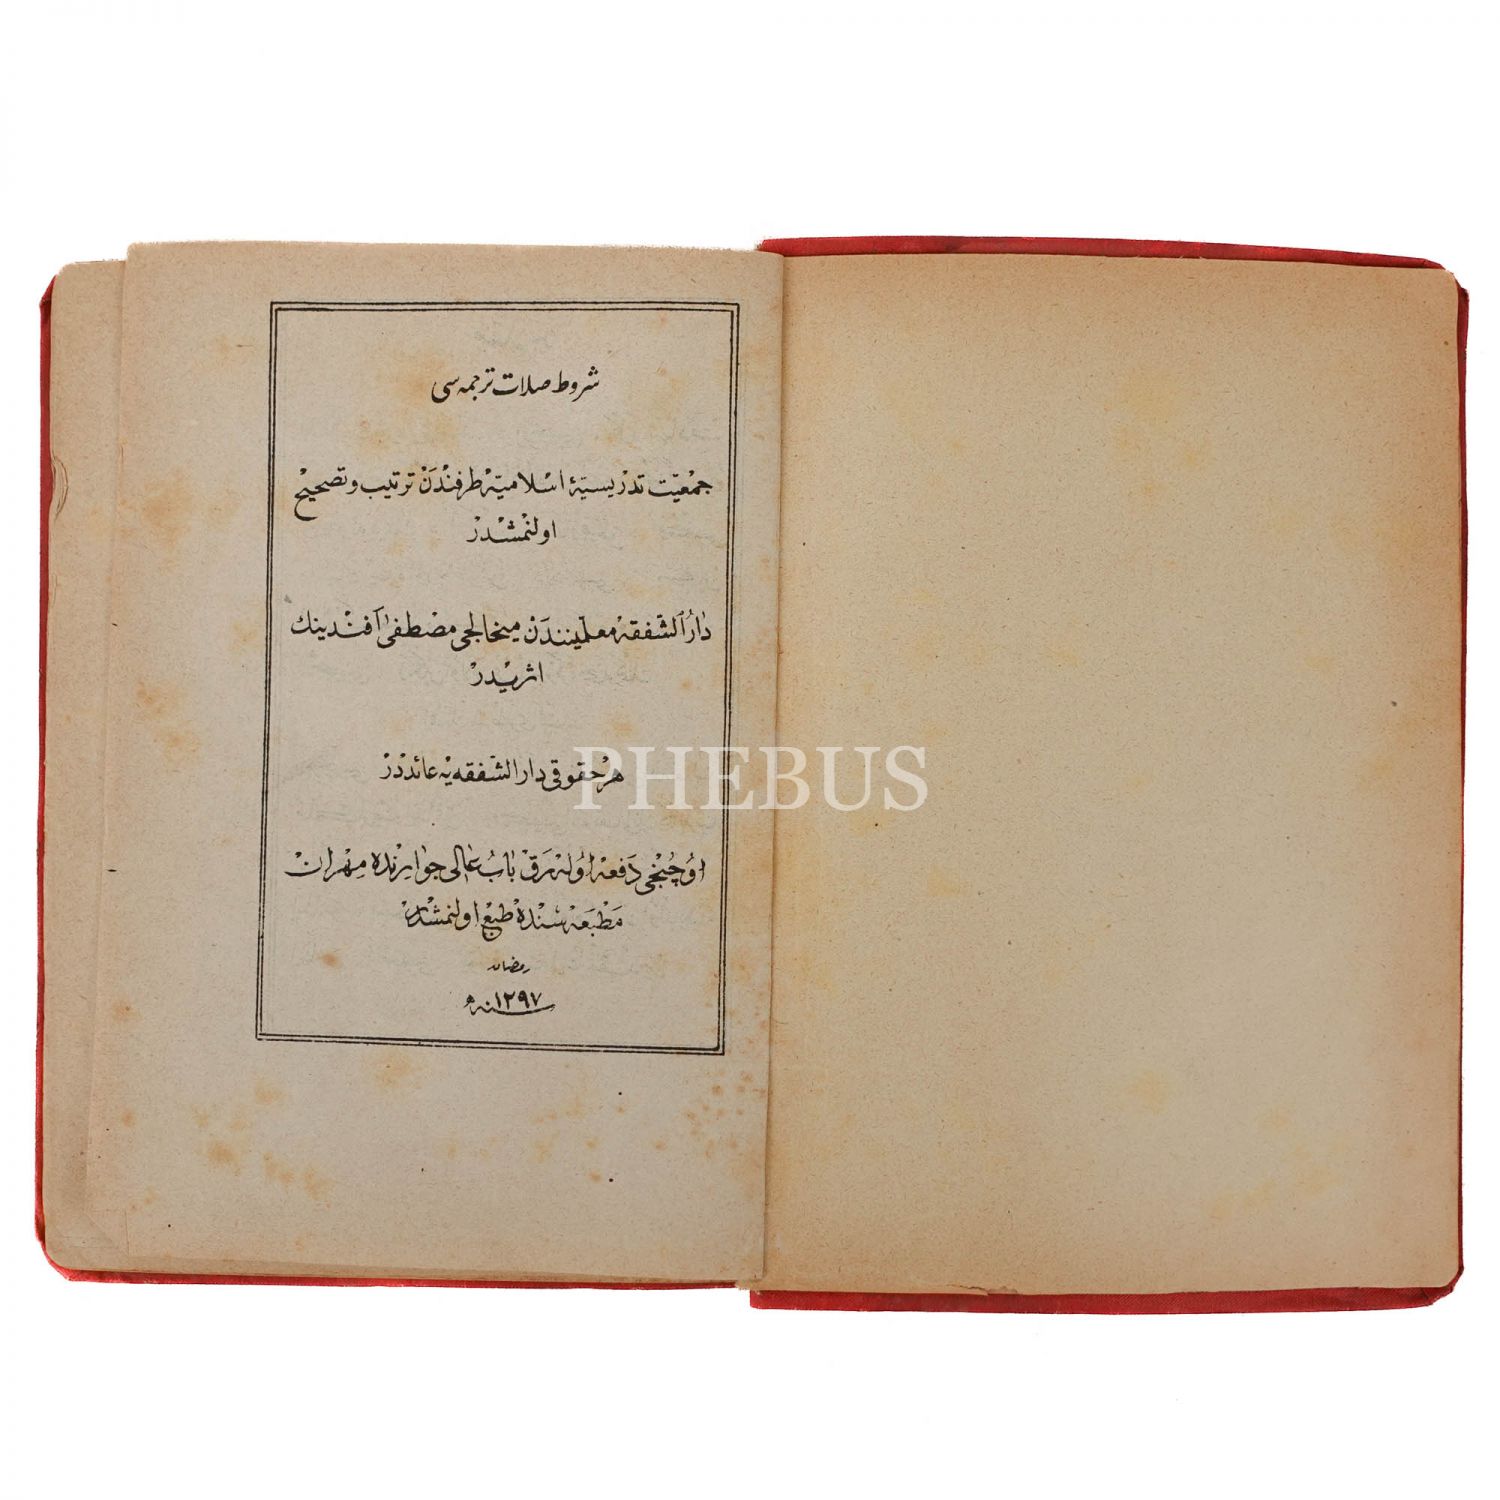 شروط صلات ترجمه سی
جمعيّت تدريسيّهٔ اسلاميّه طرفندن ترتيب و تصحيح
اولنمشدر
دار الشّفقه معلّميندن ميخالجى مصطفى افندينك
اثريدر
هر حقوقى دار الشفقه يه عائددر
اوچنجى دفعه اوله رق باب عالى جوارنده مهران
مطبعه سنده طبع اولنمشدر
رمضان
سنه ١٢٩٧
PHEBUS